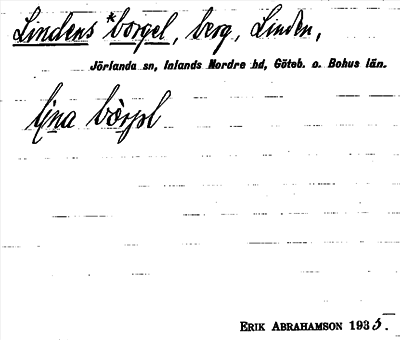 Lindens *borgel, berg, Linden,
Jörlanda sn, Inlands Nordre hd, Göteb. o. Bohus län.
bòrjəl
ERIK ABRAHAMSON 1935.